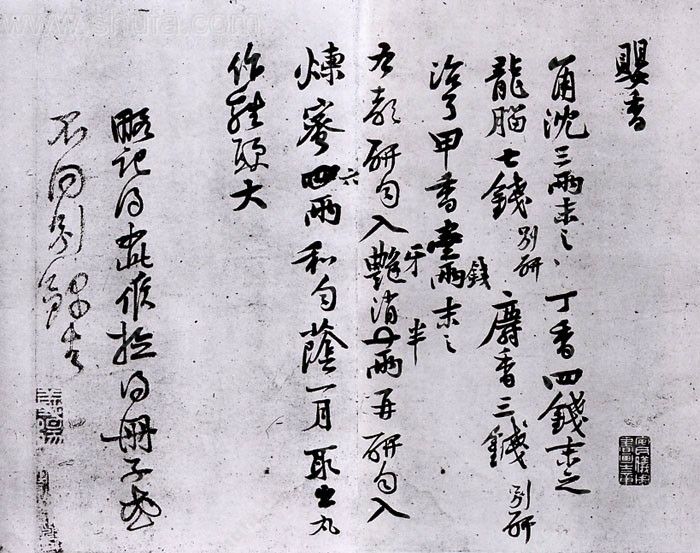 嬰香
角沈三兩末之丁香四錢末之
龍腦七錢別研麝香三錢別研
治了甲香壹兩錢末之
右都研勻入艷牙消半兩再研勻入
煉蜜四六兩和勻蔭一月取出丸
作雞頭大
略記得此候檢得冊子或
不同別錄去
www.shufa.com